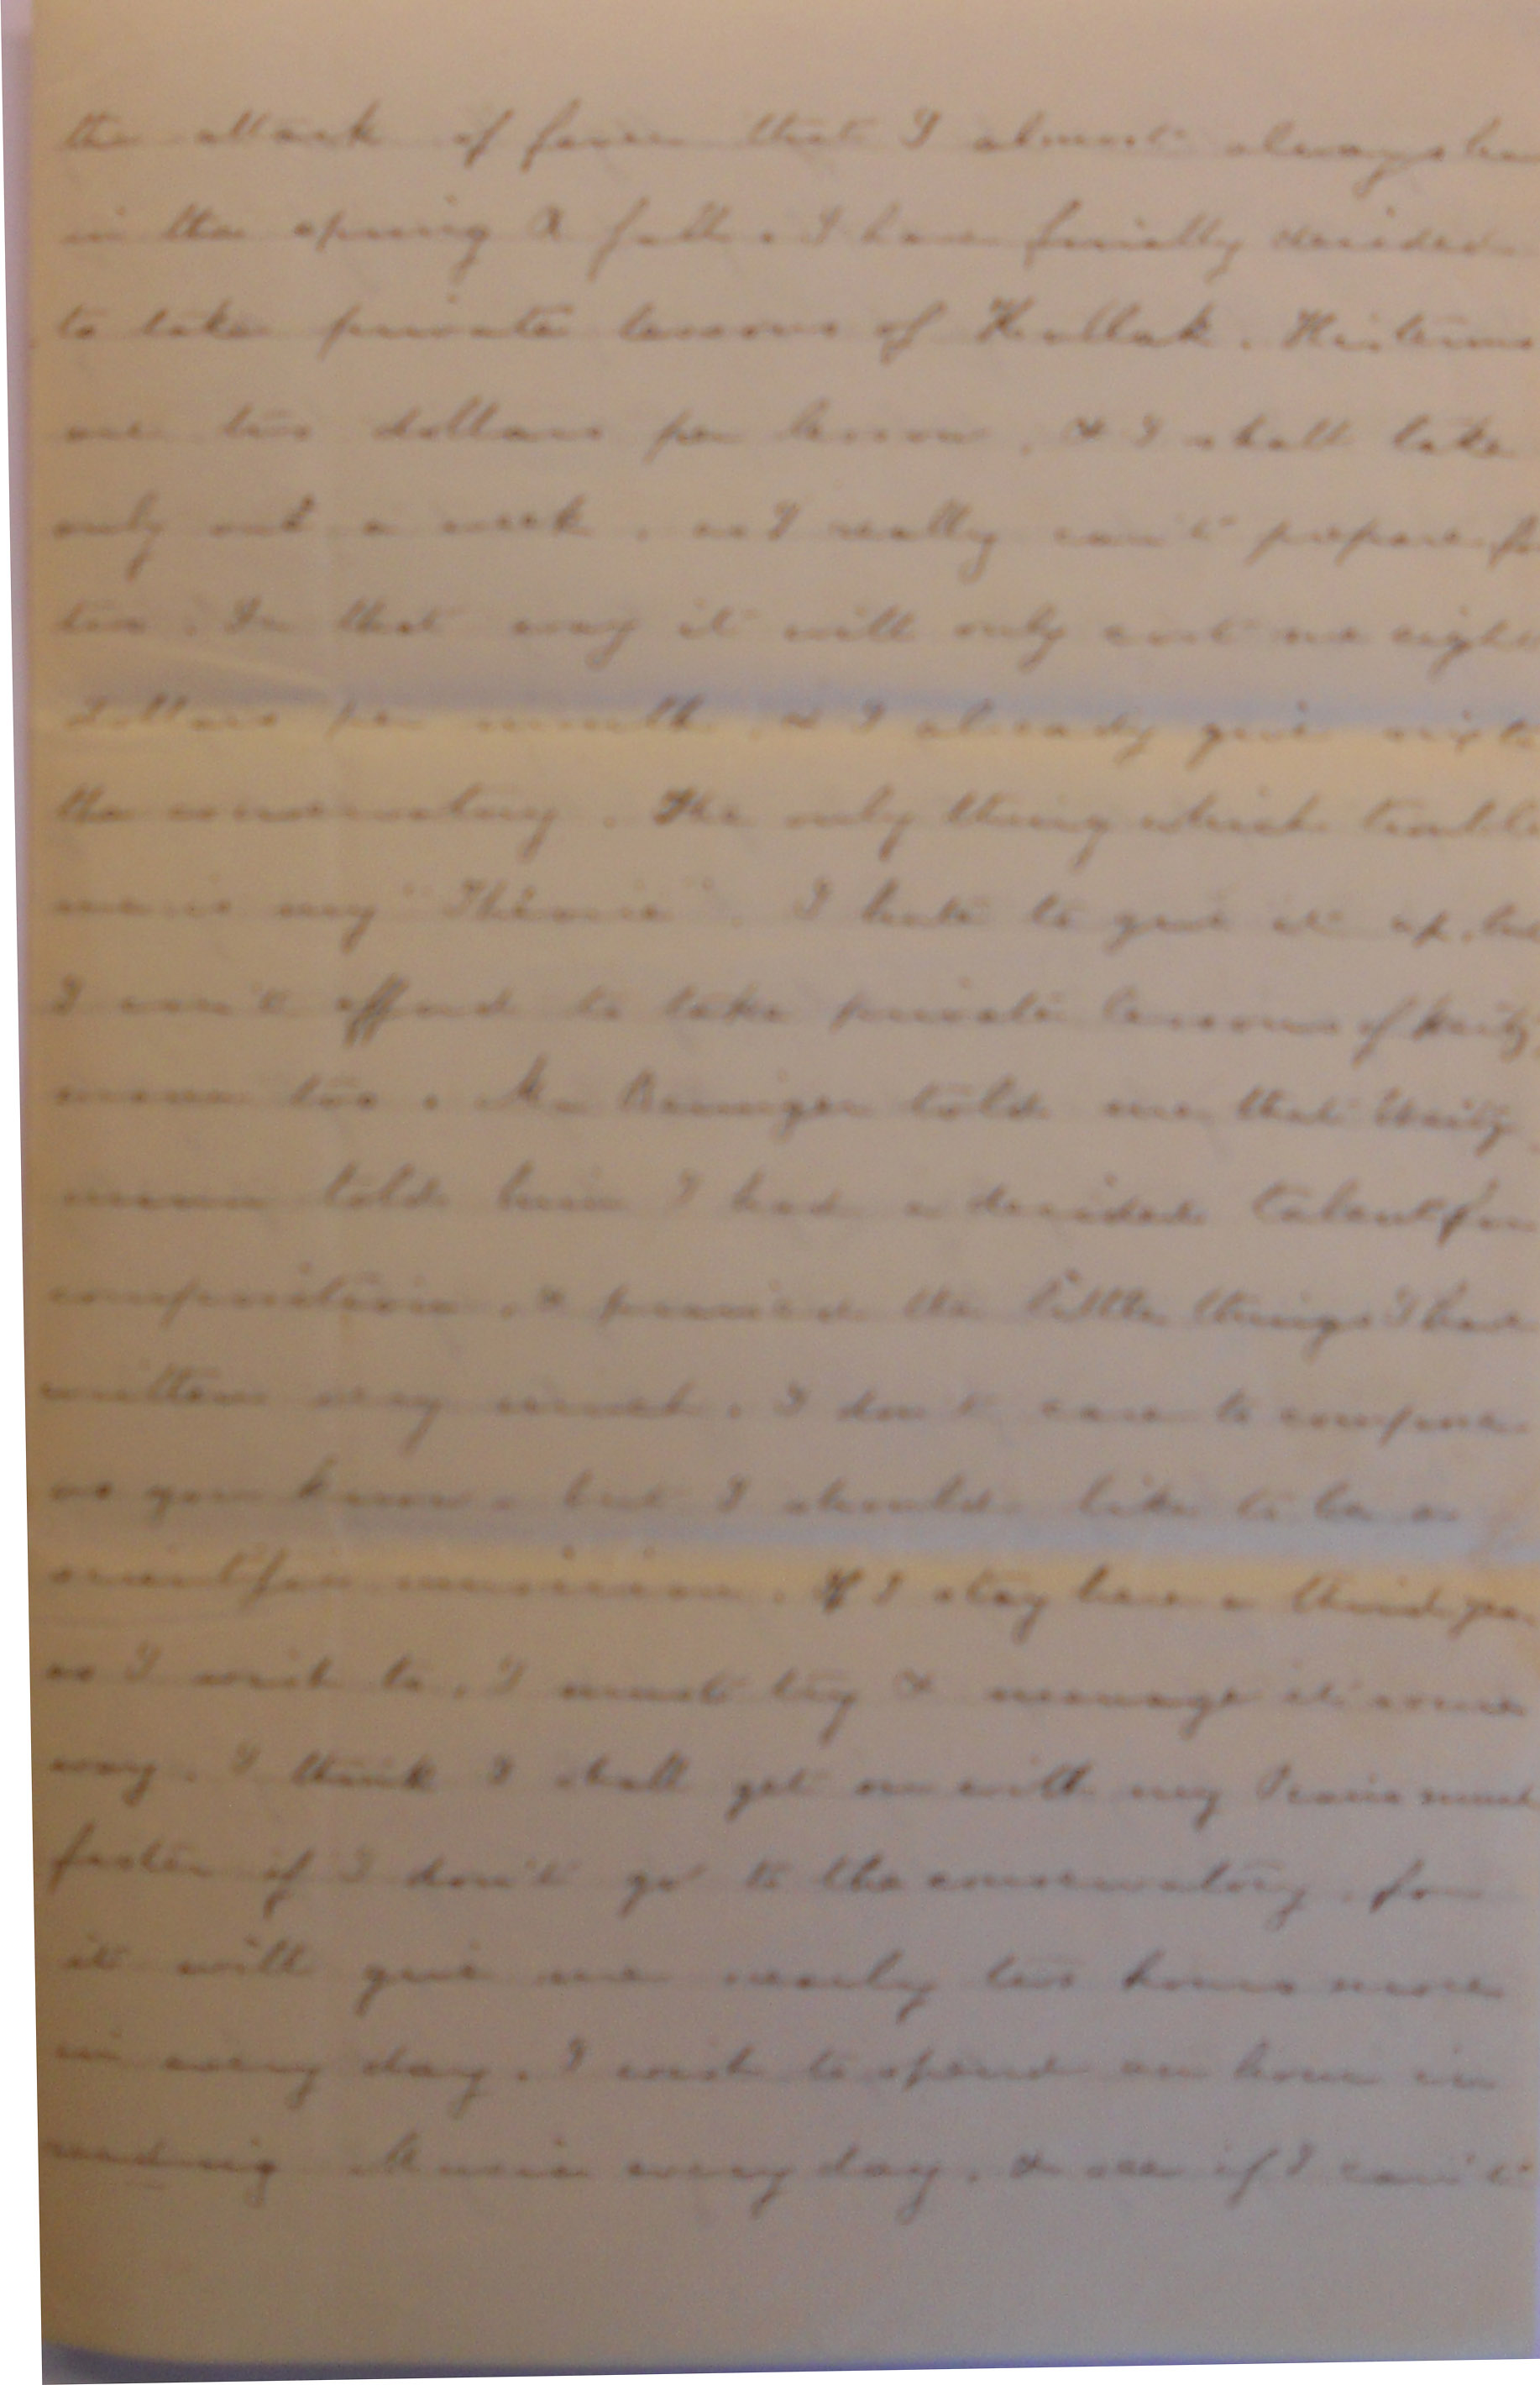 the attack of fever that I almost always ha
in the spring & fall. I have finally decided
to take private lessons of Kullak. His terms
are two dollars per lesson, & I shall take
only one a week, as I really can't prepare fo
two. In that way it will only cost me eight
dollars per month, & I already give six to
the conservatory. The only thing which trouble
me is my "Théorie". I hate to give it up, bu
I can't afford to take private lessons of Weitz
mann too. Mr told me that Weitz
mann told him I had a decided talent for
composition, & praised the little things I have
written very much. I don't care to compose
as you know, but I should like to be a
scientific musician. If I stay here a third yea
as I wish to, I must try & manage it some
way. I think I shall get on with my Piano much
faster if I don't go to the conservatory, for
it will give me nearly two hours more
in every day. I wish to spend an hour in
reading Music every day, & see if I can't